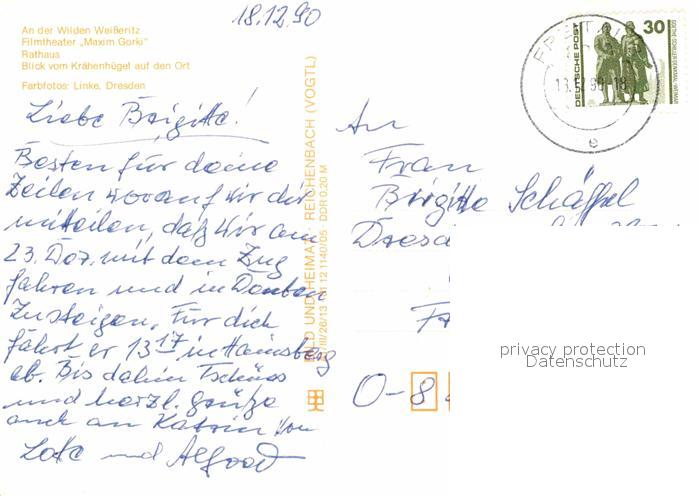 18.12.90
An der Wilden Weißeritz
Filmtheater „Maxim Gorki"
Rathaus
Blick vom Krähenhügel auf den Ort
Farbfotos: Linke, Dresden
Liebe Brigitte!
Besten für deine
Zeilen worauf wir dir
mitteilen, daß wir am
23. Dez. mit dem Zug
fahren und in
zusteigen. Für dich
fährt er 13 17 in Hainsberg
ab. Bis dahin Tschüss
und herzl. Grüße
auch an Katrin von
und
BILD UND HEIMAT REICHENBACH (VOGTL)
III/26/13 01 12 1140/05 DDR 0,20 M
DEUTSCHE POST
30
GOETHE-SCHILLER-DENKMAL WEIMAR
An
Frau
Brigitte Schäffel
Dresd
O-8
privacy protection
Datenschutz